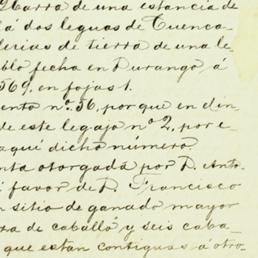 Ibarra de una estancia de
á dos leguas de Cuenca
lerias de tierra de una le
blo fecha en Durango á
569, en fojas 1.
ento nº. 56, porque en din
de este legajo nº 2, por e
aqui dicho número.
nta otorgada por D. Anto
á favor de D. Francisco
n sitio de ganado mayor
za de caballo y seis caba
que estan contiguas á otro